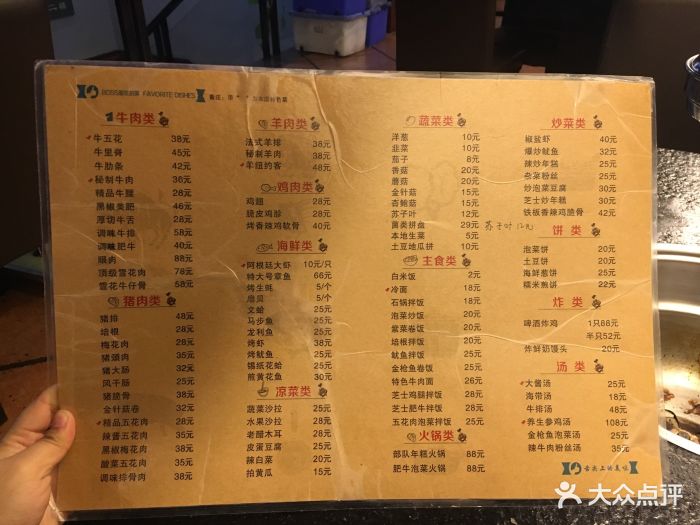 FAVORITE DISHES
牛肉类
牛五花 38元
牛里脊 45元
牛肋条 42元
秘制牛肉 36元
精品牛腱 28元
黑椒美肥 46元
厚切牛舌 48元
调味牛排 58元
调味肥牛 40元
眼肉 88元
顶级雪花肉 78元
雪花牛仔骨 58元
猪肉类
猪排 48元
培根 28元
梅花肉 28元
猪頭肉 35元
猪大肠 32元
风干肠 25元
猪脆骨 38元
金针菇卷 32元
精品五花肉 28元
辣酱五花肉 35元
黑椒梅花肉 38元
酸菜五花肉 35元
调味排骨肉 38元
羊肉类
法式羊排 38元
秘制羊肉 38元
羊纽约客 48元
鸡肉类
鸡翅 28元
脆皮鸡胗 28元
烤香辣鸡软骨 40元
海鲜类
阿根廷大虾 10元/只
特大号章鱼 66元
烤生蚝 5/个
扇贝 5/个
文蛤 25元
马步鱼 25元
龙利鱼 25元
烤虾 38元
烤鱿鱼 35元
锡纸花蛤 30元
煎黄花鱼 30元
凉菜类
蔬菜沙拉 25元
水果沙拉 28元
老醋木耳 28元
皮蛋豆腐 25元
辣白菜 20元
拍黄瓜 15元
蔬菜类
洋葱 10元
韭菜 10元
茄子 8元
香菇 20元
蘑菇 20元
金针菇 15元
杏鲍菇 15元
苏子叶 12元
菌类拼盘 29元
本地生菜 5元
土豆地瓜拼 10元
苏子叶12元
主食类
白米饭 2元
冷面 18元
石锅拌饭 18元
泡菜炒饭 20元
紫菜卷饭 20元
培根拌饭 20元
鱿鱼拌饭 20元
金枪鱼卷饭 25元
特色牛肉面 26元
芝士鸡腿拌饭 28元
芝士肥牛拌饭 30元
五花肉泡菜拌饭 25元
火锅类
部队年糕火锅 88元
肥牛泡菜火锅 88元
炒菜类
椒盐虾 40元
爆炒鱿鱼 32元
辣炒年糕 25元
杂菜粉丝 25元
炒泡菜豆腐 30元
芝士炒年糕 30元
铁板香辣鸡脆骨 42元
饼类
泡菜饼 20元
土豆饼 20元
海鲜葱饼 25元
糯米煎饼 22元
炸类
啤酒炸鸡 1只88元
半只52元
炸鲜奶馒头 20元
汤类
大酱汤 25元
海带汤 18元
牛排汤 48元
养生参鸡汤 108元
金枪鱼泡菜汤 25元
辣牛肉粉丝汤 35元
舌尖上的美味
大众点评